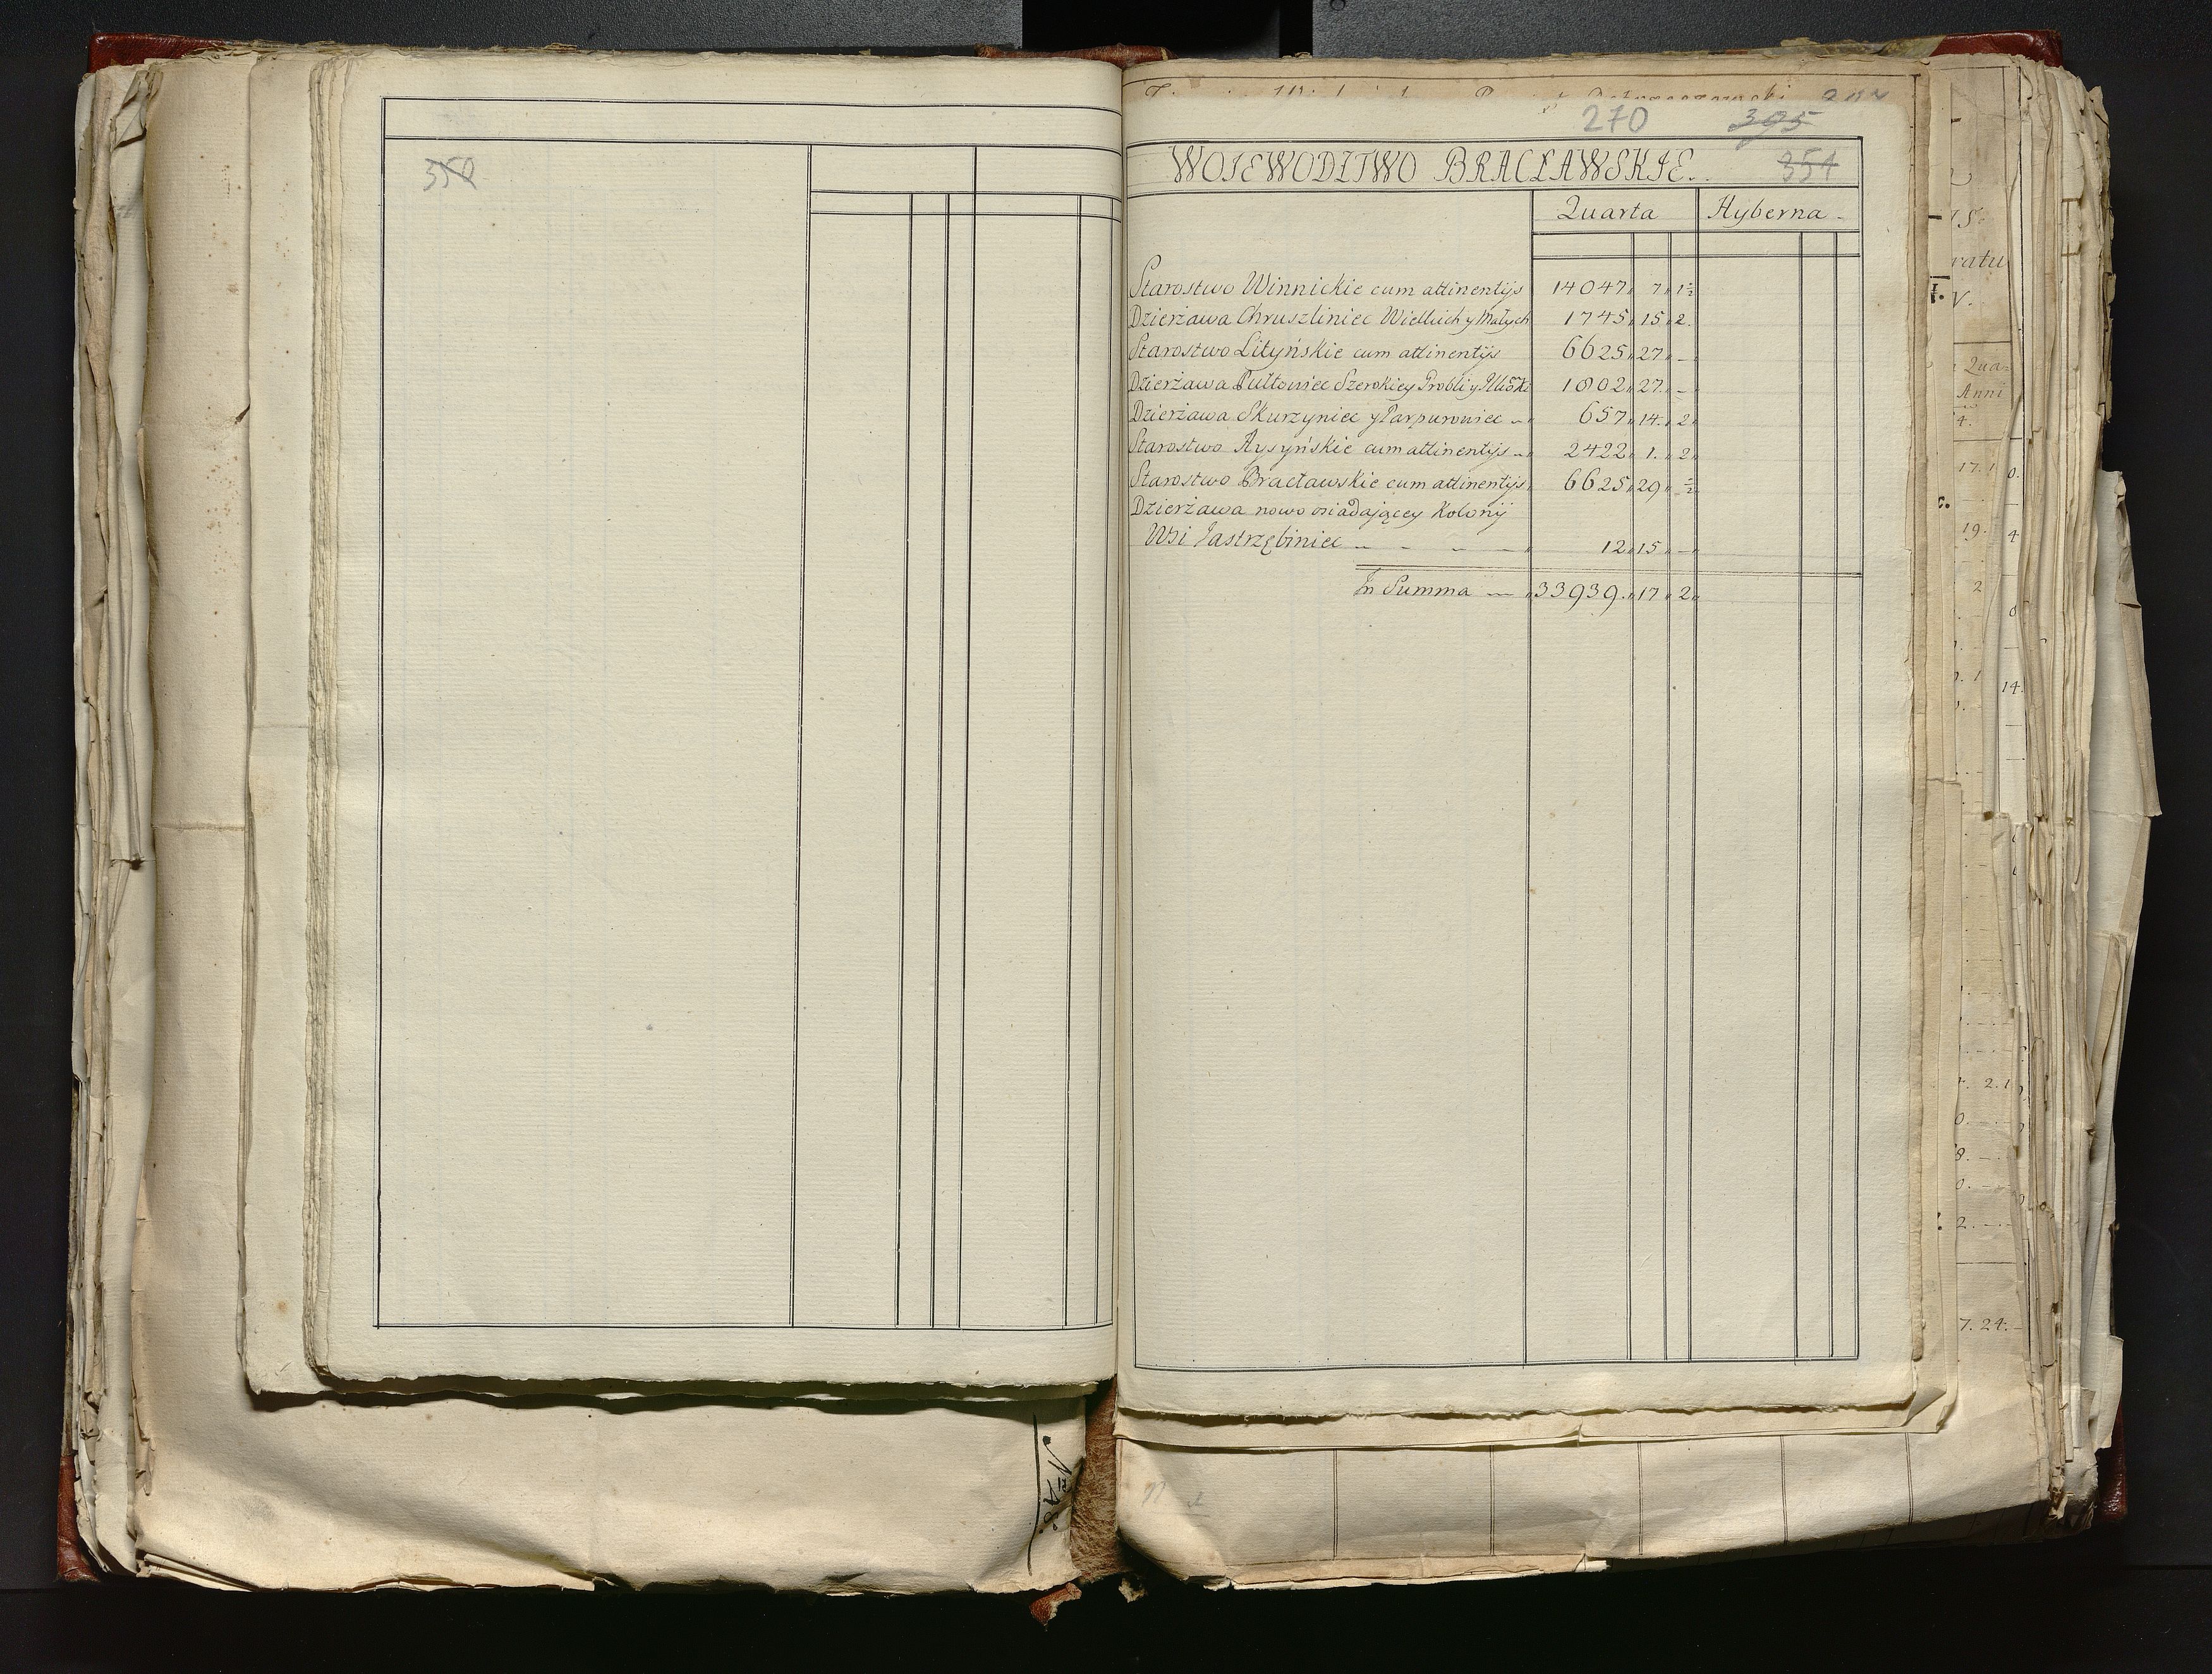 350
270 395
WOIEWODZTWO BRACŁAWSKIE. 354
Quarta Hyberna
Starostwo Winnickie cum attinentijs 14047 7 1½
Dzierżawa Chruszliniec Wielkich y Małych 1745 15 2
Starostwo Lityńskie cum attinentijs 6625 27 -
Dzierżawa Szerokiey Grobli y 1802 27 -
Dzierżawa Skurzyniec y Parpurowiec 657 14 2
Starostwo cum attinentijs 2422 1 2
Starostwo Bracławskie cum attinentijs 6625 29 ½
Dzierżawa nowo osiadającey Kolonij
Wsi Jastrzębiniec 12 15 -
In Summa 33939 17 2